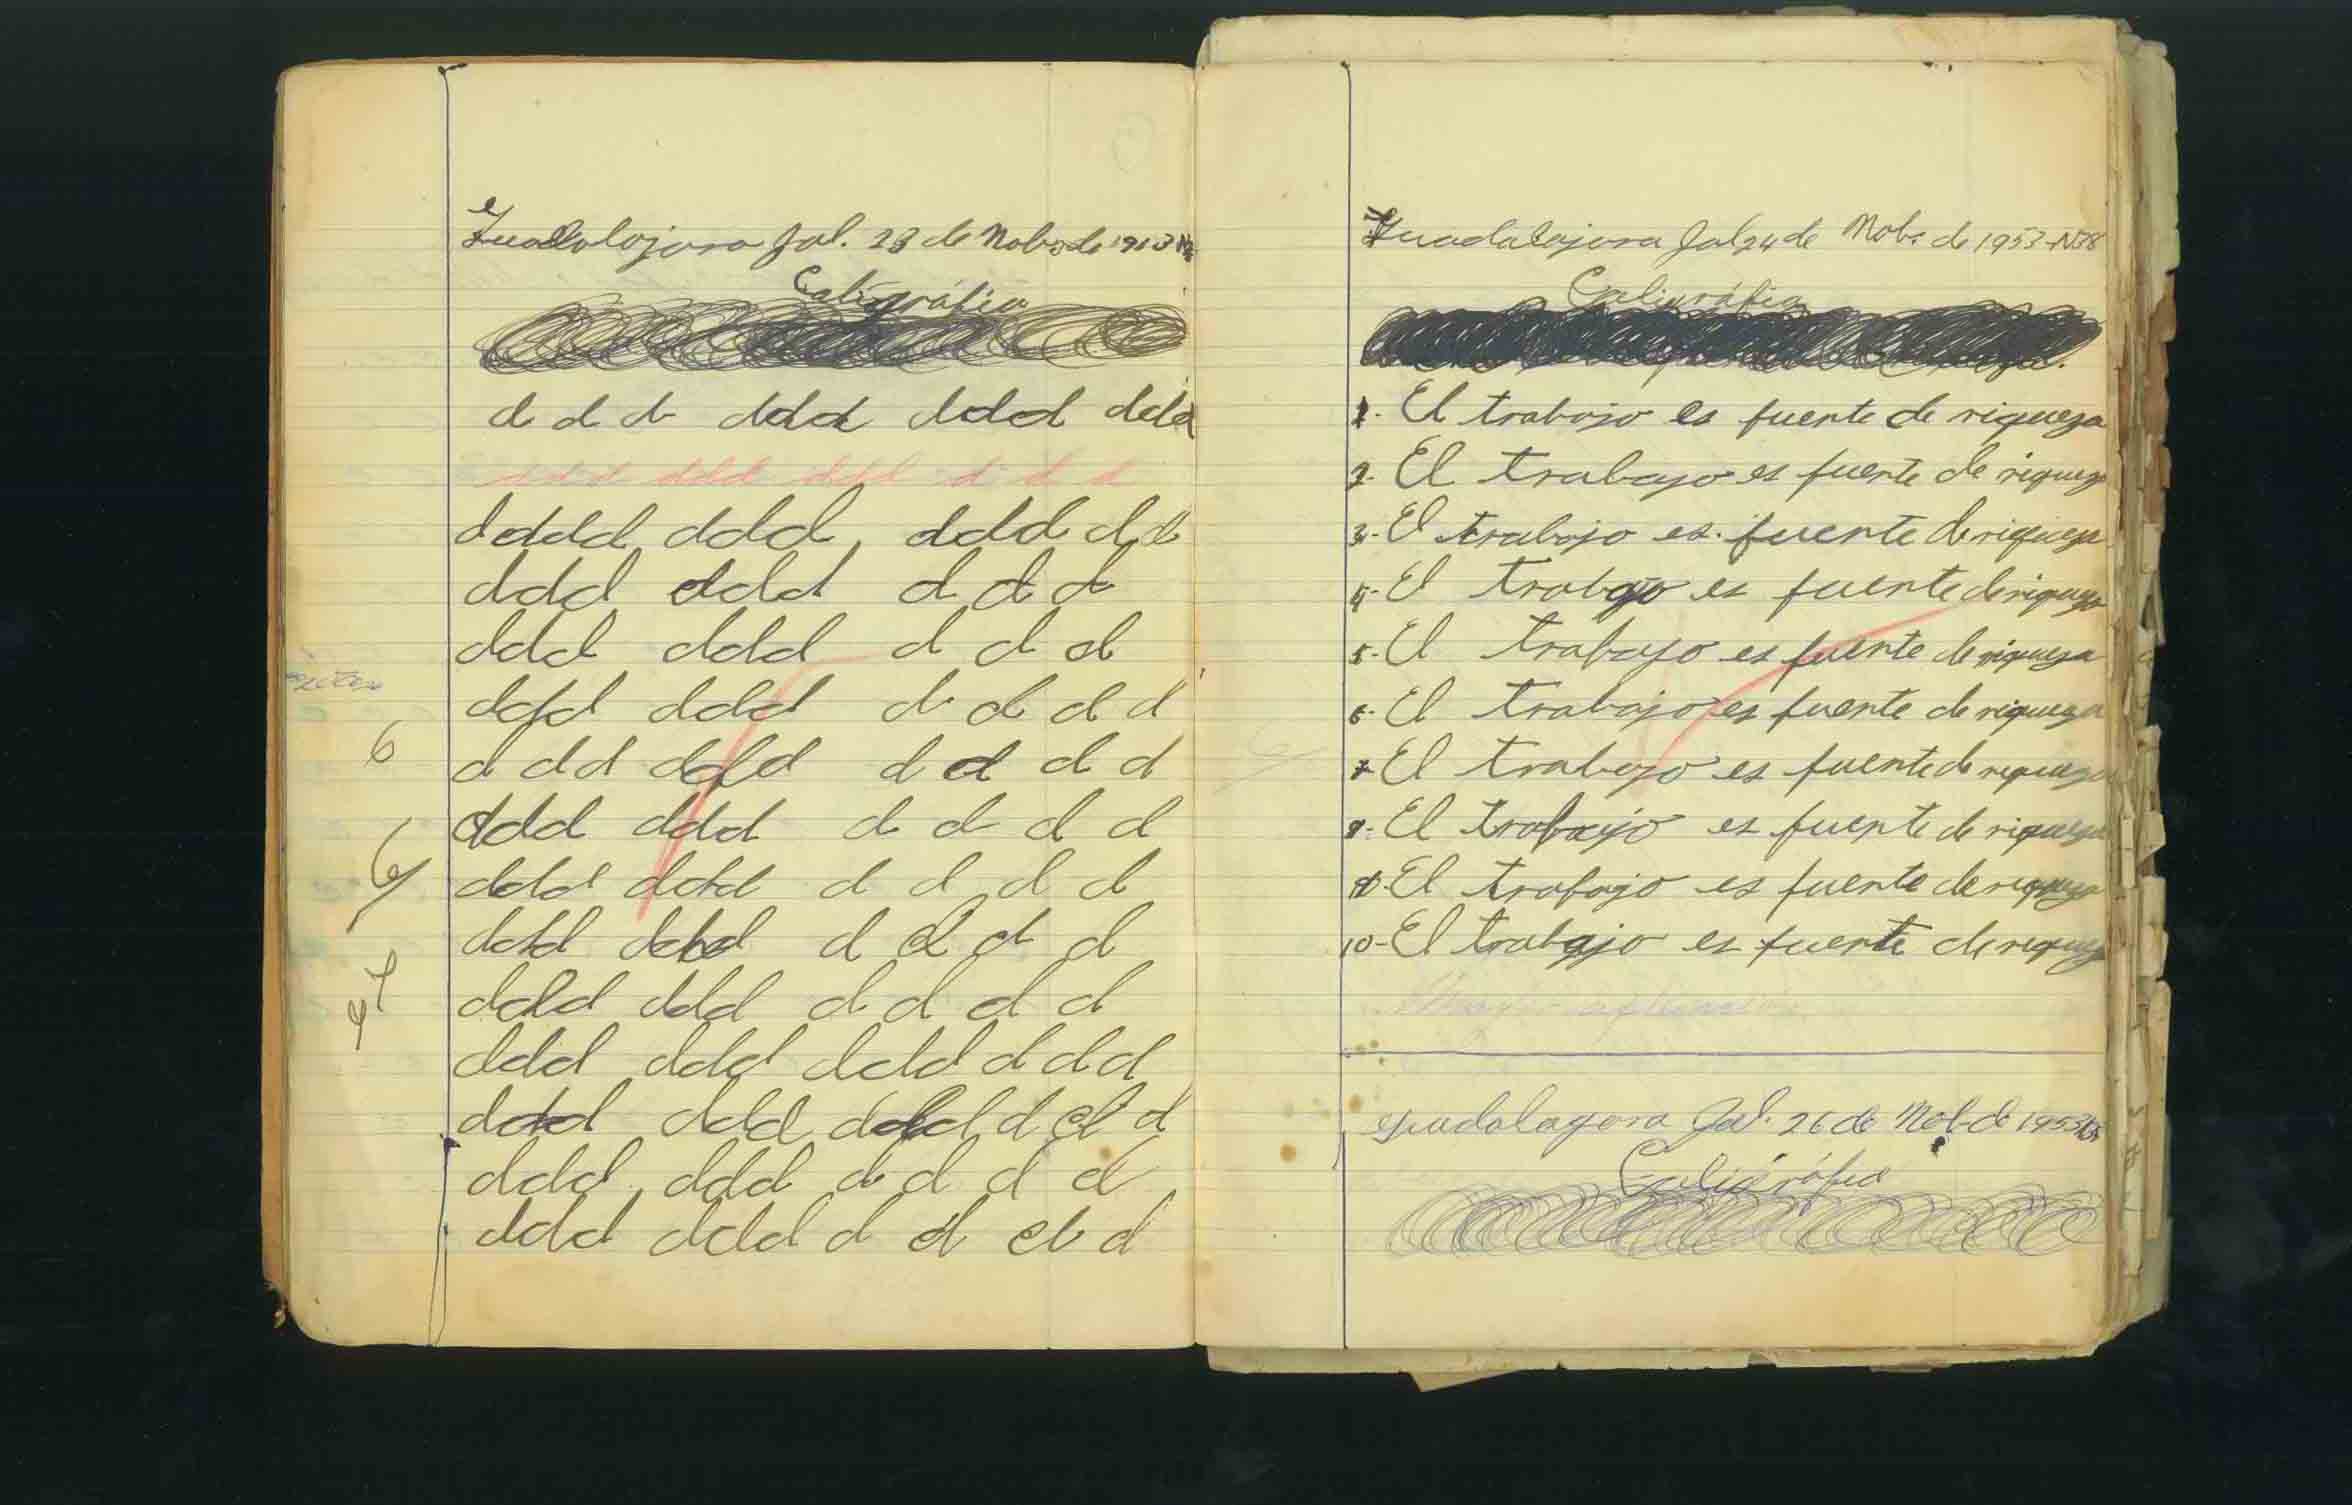 Guadalajara Jal. 23 de Nob. de 1953
Caligráfia
d d d ddd ddd ddd
ddd ddd ddd d d d
ddddd dddd dddd d d
dddd dddd d d d
ddd dddd d d d
ddd ddd d d d d
d d d d ddd d d d d
ddd ddd d d d d
ddd ddd d d d d
ddd ddd d d d d
ddd ddd d d d d
ddd ddd dddd d d d
ddd ddd dddd d d d
ddd ddd d d d d
ddd dddd d d d d
6
Guadalajara Jal 24 de Nob. de 1953-N38
Caligráfia
1- El trabajo es fuente de riqueza
2- El trabajo es fuente de riqueza
3- El trabajo es fuente de riqueza
4- El trabajo es fuente de riqueza
5- El trabajo es fuente de riqueza
6- El trabajo es fuente de riqueza
7- El trabajo es fuente de riqueza
8- El trabajo es fuente de riqueza
9- El trabajo es fuente de riqueza
10- El trabajo es fuente de riqueza
Guadalagara Jal. 26 de Nob de 1953
Caligráfia